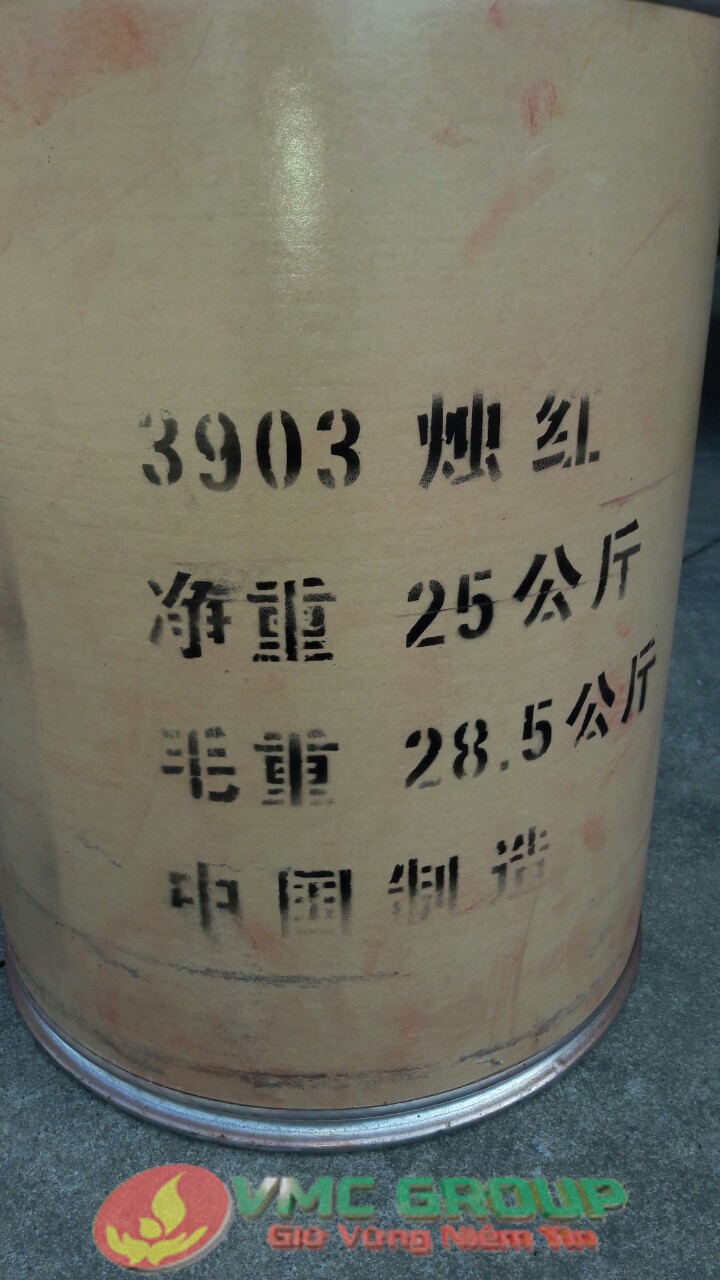 3903 烛红
净重 25公斤
毛重 28.5公斤
中国制造
VMC GROUP
Giữ Vững Niềm Tin